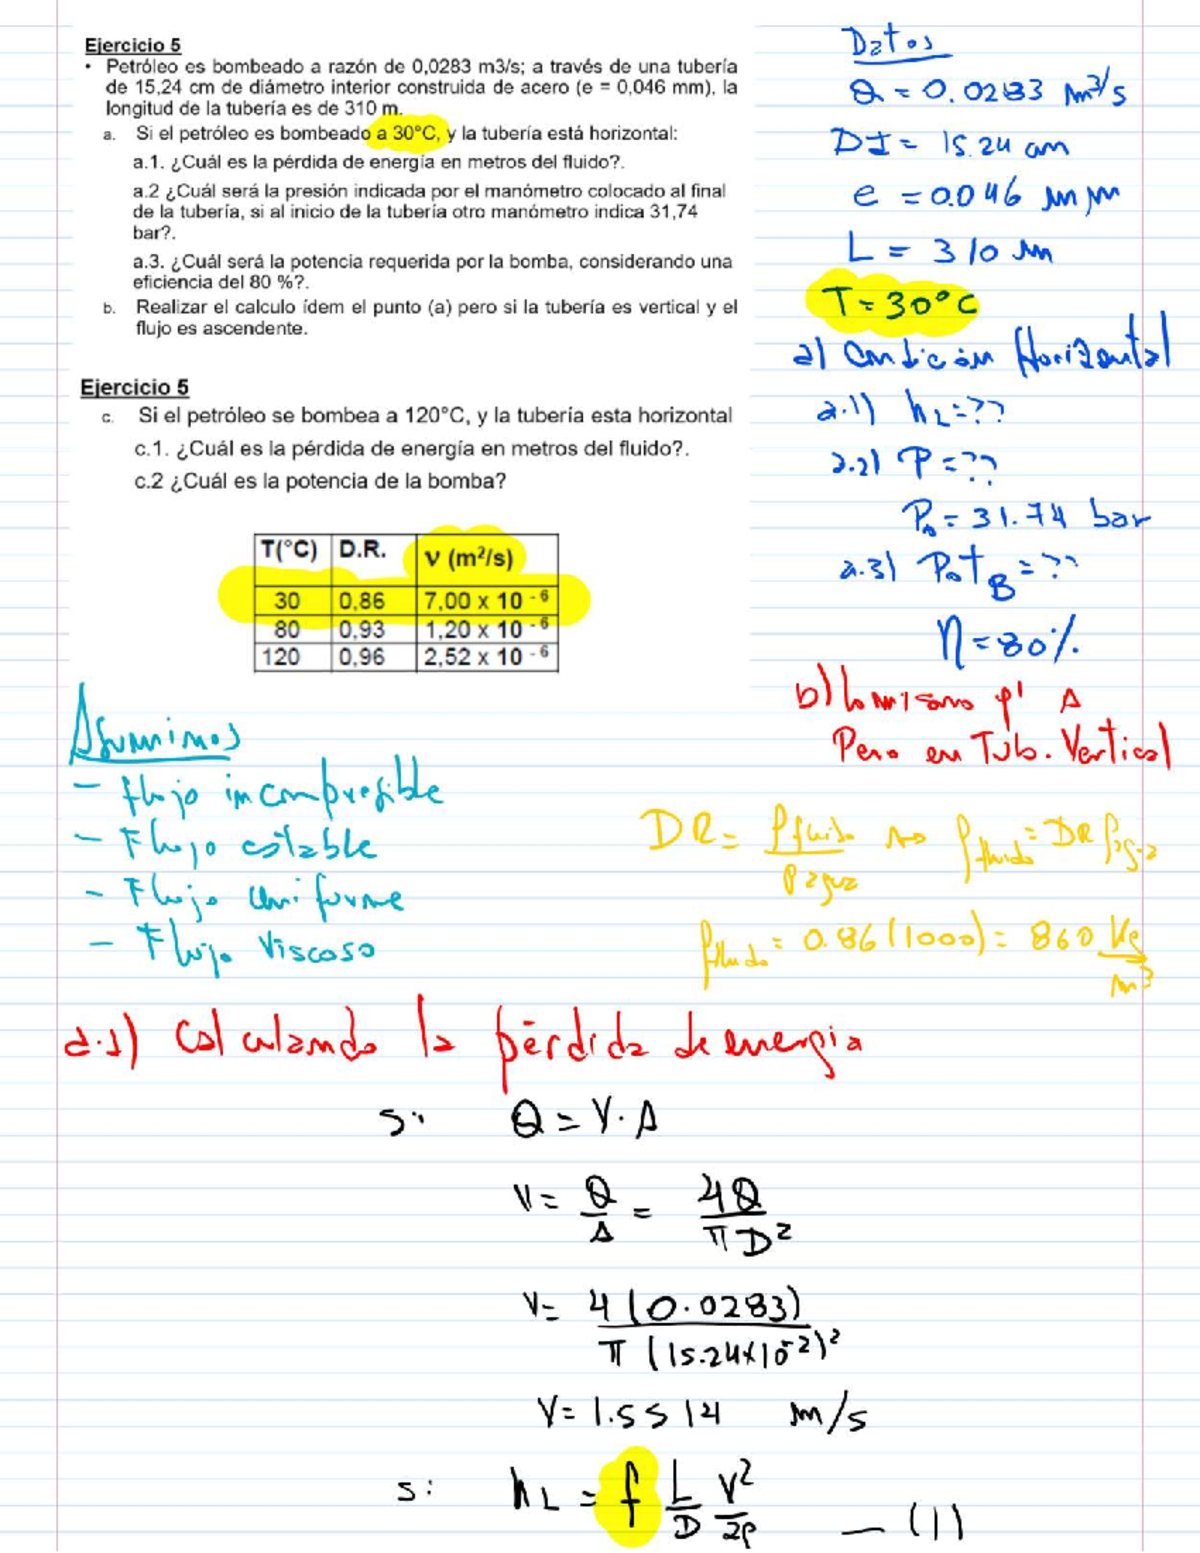 Ejercicio 5
• Petróleo es bombeado a razón de 0,0283 m3/s; a través de una tubería
de 15,24 cm de diámetro interior construida de acero (e = 0,046 mm), la
longitud de la tubería es de 310 m.
a. Si el petróleo es bombeado a 30°C, y la tubería está horizontal:
a.1. ¿Cuál es la pérdida de energía en metros del fluido?.
a.2 ¿Cuál será la presión indicada por el manómetro colocado al final
de la tubería, si al inicio de la tubería otro manómetro indica 31,74
bar?.
a.3. ¿Cuál será la potencia requerida por la bomba, considerando una
eficiencia del 80 %?.
b. Realizar el calculo ídem el punto (a) pero si la tubería es vertical y el
flujo es ascendente.
Ejercicio 5
c. Si el petróleo se bombea a 120°C, y la tubería esta horizontal
c.1. ¿Cuál es la pérdida de energía en metros del fluido?.
c.2 ¿Cuál es la potencia de la bomba?
T(°C) D.R. ν (m²/s)
30 0,86 7,00 x 10 -6
80 0,93 1,20 x 10 -6
120 0,96 2,52 x 10 -6
Datos
Q = 0.0283 m³/s
DI = 15.24 cm
e = 0.046 mm
L = 310 m
T = 30°C
a) Condición Horizontal
a.1) hL = ??
a.2) P = ??
P₀ = 31.74 bar
a.3) PotB = ??
η = 80%
b) Lo mismo q' A
Pero en Tub. Vertical
Asumimos
- flujo incompresible
- Flujo estable
- Flujo uniforme
- Flujo viscoso
DR = ρfluido / ρagua → ρfluido = DR ρagua
ρfluido = 0.86 (1000) = 860 Kg/m³
a.1) Calculando la pérdida de energia
si Q = V · A
V = Q/A = 4Q/πD²
V = 4(0.0283) / π(15.24x10⁻²)²
V = 1.5514 m/s
si hL = f L/D V²/2g — (1)